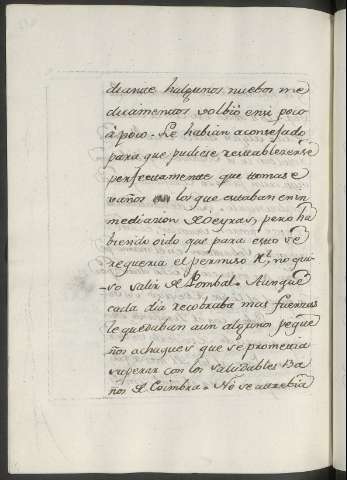 diante halgunos nuebos me
dicamentos volbió en si poco
á poco. Le habian aconsejado
para que pudiese restablezerse
perfectamente que tomase
vaños en los que estaban en in
mediacion de Oeyras, pero ha
biendo oido que para esto se
requeria el permiso Rl. no qui
so salir de Pombal. Aunque
cada dia recobraba mas fuerzas
le quedaban aun algunos peque
ños achaques que se prometia
superar con los saludables Ba
ños de Coimbra. No se atrebia